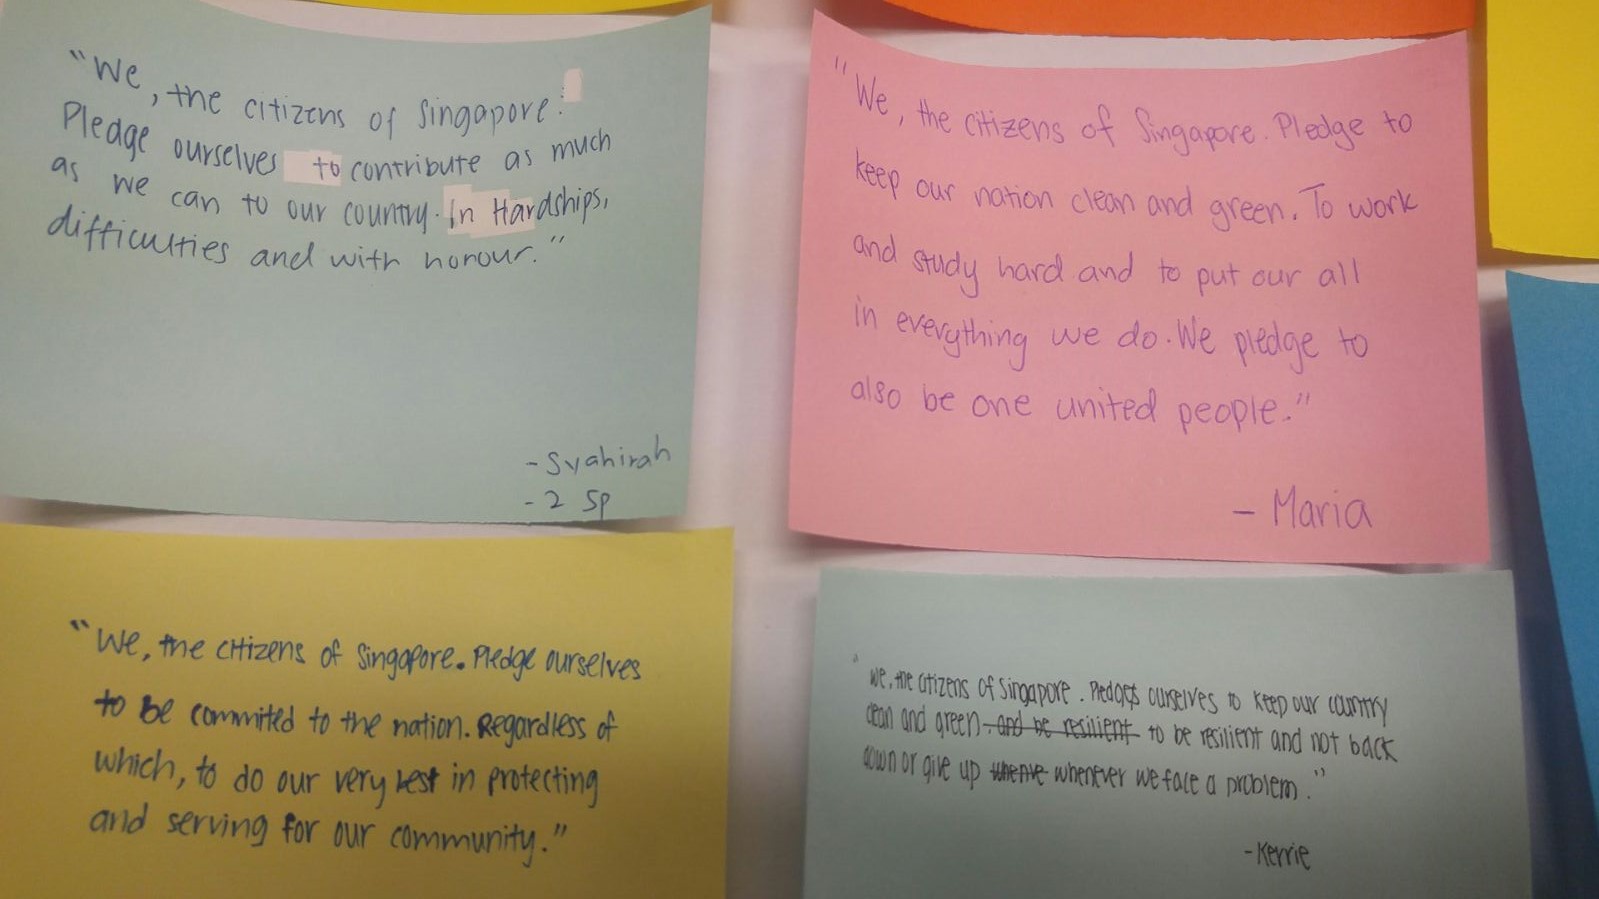 "We, the citizens of Singapore.
Pledge ourselves to contribute as much
as we can to our country. In Hardships,
difficulties and with honour."
- Syahirah
- 2 SP
"We, the citizens of Singapore. Pledge to
keep our nation clean and green. To work
and study hard and to put our all
in everything we do. We pledge to
also be one united people."
- Maria
"We, the citizens of Singapore. Pledge ourselves
to be commited to the nation. Regardless of
which, to do our very best in protecting
and serving for our community."
"We, the citizens of Singapore. Pledges ourselves to keep our country
clean and green. and be resilient to be resilient and not back
down or give up whenve whenever we face a problem."
- Kerrie